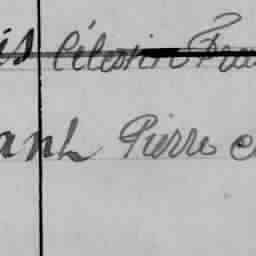 is Célestin Fra
anh Pierre e